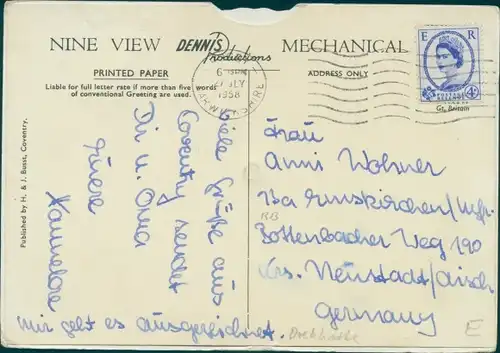 NINE VIEW DENNIS Productions MECHANICAL
PRINTED PAPER
ADDRESS ONLY
Liable for full letter rate if more than five words
of conventional Greeting are used.
Published by H. & J. Busst, Coventry.
E R
4D
Gt. Britain
1958
Viele Grüße aus
Coventry sendet
Dir u. Oma
Hannelore
Mir geht es ausgezeichnet.
Frau
Anni
Emskirchen/Mfr.
Bottenbacher Weg 190
Krs. Neustadt/Aisch
Germany
BB
E